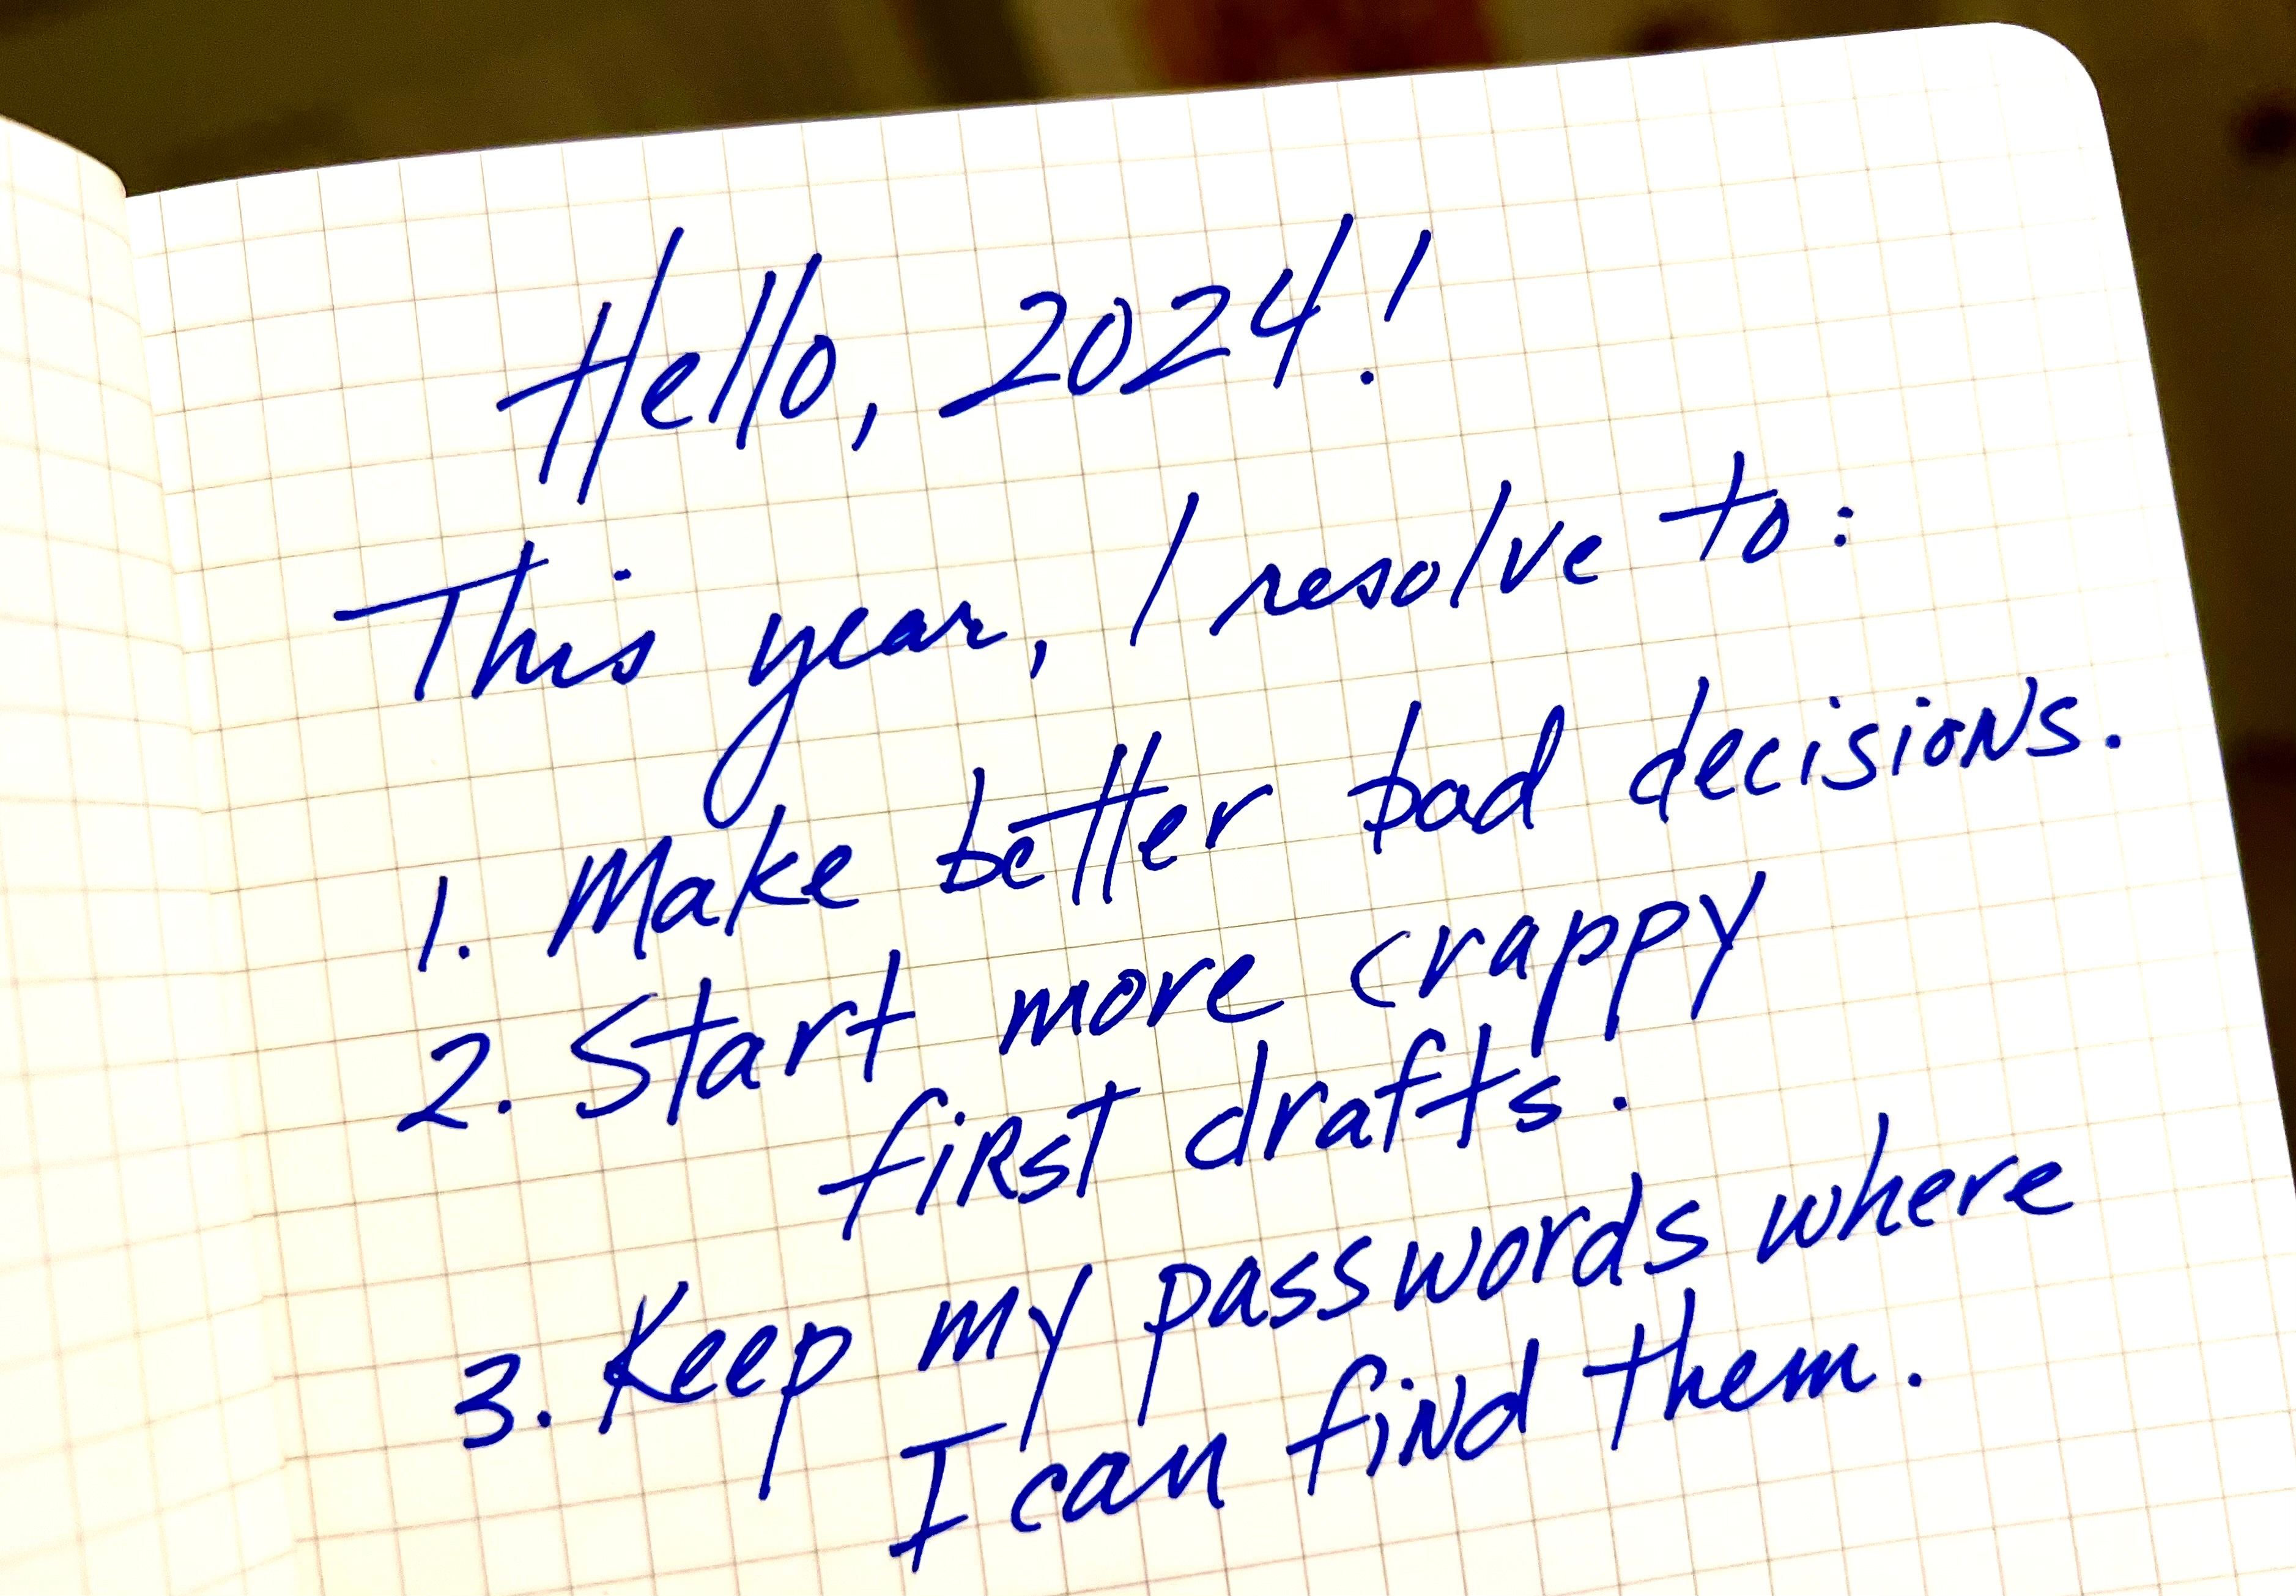 Hello, 2024!
This year, I resolve to:
1. Make better bad decisions.
2. Start more crappy
first drafts.
3. Keep my passwords where
I can find them.